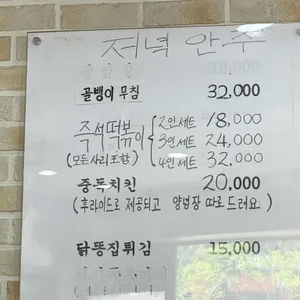 저녁 안주
18,000
골뱅이 무침 32,000
즉석떡볶이 (모든 사리포함)
2인세트 18,000
3인세트 24,000
4인세트 32,000
중독치킨 20,000
(후라이드로 제공되고 양념장 따로 드려요.)
닭똥집튀김 15,000